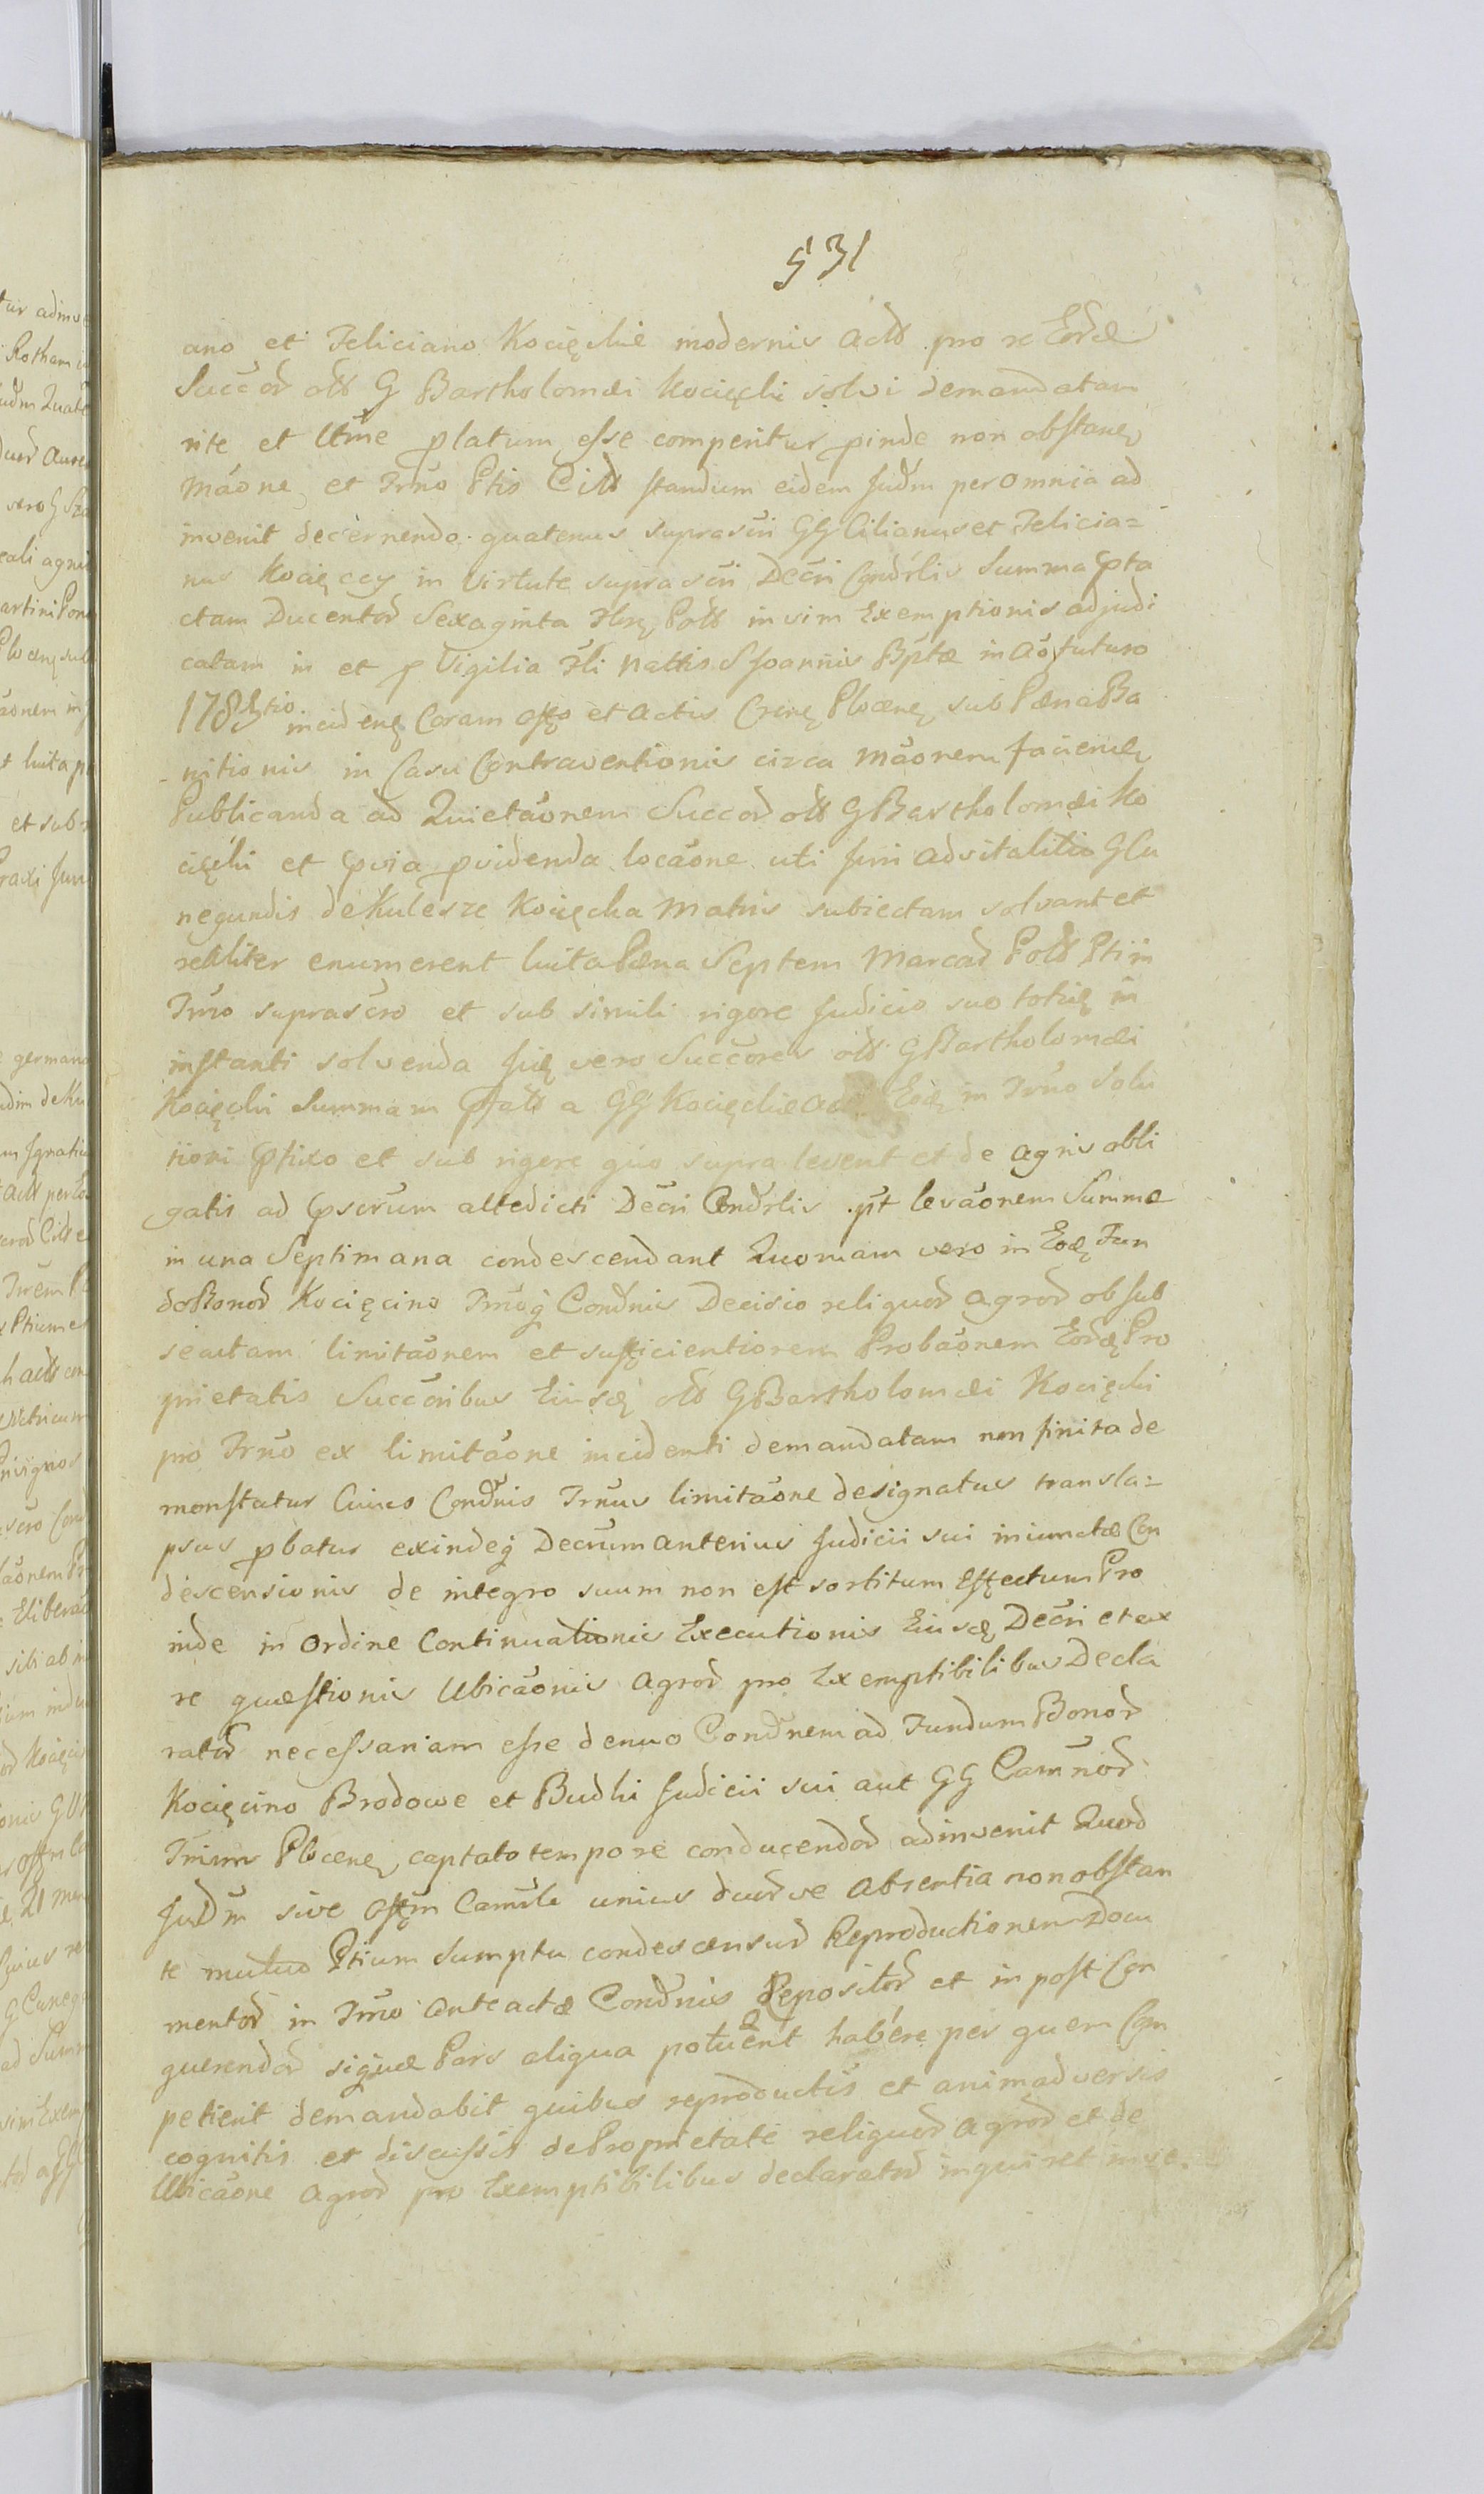 531
ano et Feliciano Kocięckie modernis actt pro re Eadae
Succor ott G Bartholomæi Kocięcki solvi demandatam
rite et Ltme platum esse comperitur pinde non obstane
mãone et Trno Ptis Citt standum eidem Judm per omnia ad
invenit decernendo quatenus suprascri GG Cilianus et Felicia=
nus Kocięccy in virtute suprascri Decri Condrlis Summa pta
ctam Ducentor Sexaginta Flor Polt in vim Exemptionis adjudi
catam in et p Vigilia Fti Nattis S Joannis Bptæ in Ao futuro
incidene Coram offo et Actis Crene Plocene sub Pæna Ba
nitionis in Casu Contraventionis circa mãonem faciende
Publicanda ad Quietãonem Succor ott G Bartholomæi Ko
cięcki et pvia pvidenda locãone uti Juri advitalitio G Cu
negundis de Kulesze Kocięcka Matris subiectam solvant et
realiter enumerent luita Pæna Septem Marcar Polt Pti in
Trno suprascro et sub simili rigore Judicio suo toties in
instanti solvenda Jię vero Succores ott G Bartholomæi
Kocięcki Summam ptatt a GG Kocięckie in Trno Solu
tioni pfixo et sub rigore quo supra levent et de agris obli
gatis ad pscrum altedicti Decri Condrlis pt levãonem Summæ
in una Septimana condescendant Quoniam vero in Eodę Fun
do Bonor Kocięcino Trnoq Condnis Decisio reliquor agror ob sub
secutam limitãonem et sufficientiorem Probãonem Eordę Pro
prietatis Succoribus Eiusdę ott G Bartholomæi Kocięcki
pro Trno ex limitãone incidenti demandatam non finita de
monstratur Cuius Condnis Trnus limitãone designatus transla=
psus pbatur exindeq Decrum anterius Judicii sui iniunctæ Con
descensionis de integro suum non est sortitum Effectum Pro
inde in ordine Continuationis Executionis Eiusdę Decri et ex
re quæstionis Ubicãonis agror pro Exemptibilibus Decla
rator necessariam esse denuo Condnem ad Fundum Bonor
Kocięcino Brodowe et Budki Judicii sui aut GG Camnor
Trium Plocene captato tempore conducendor adinvenit Quod
Judm sive offm Camrle unius duorve absentia non obstan
te mutuo Ptium Sumptu condescensur Reproductionem Docu
mentor in Trno anteactæ Condnis Repositor et in post Con
querendor siquæ Pars aliqua potuerit habere per quem Com
petierit demandabit quibus reproductis et animadversis
cognitis et discussis de Proprietate reliquor agror et de
Ubicãone agror pro Exemptibilibus declarator inquiret